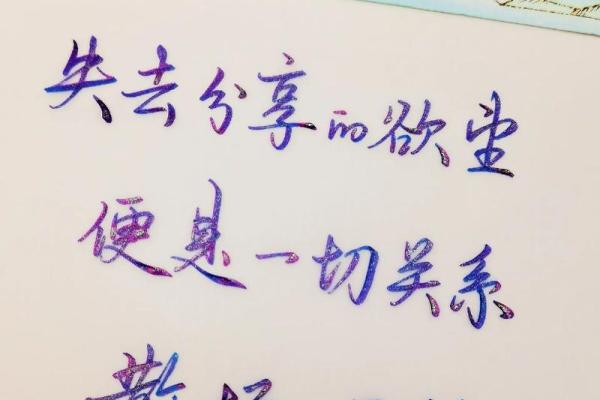 失去分享的欲望
便是一切关系